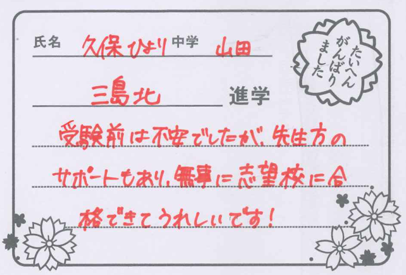 氏名 久保ひより 中学 山田
たいへん
がんばり
ました
三島北 進学
受験前は不安でしたが、先生方の
サポートもあり、無事に志望校に合
格できてうれしいです!